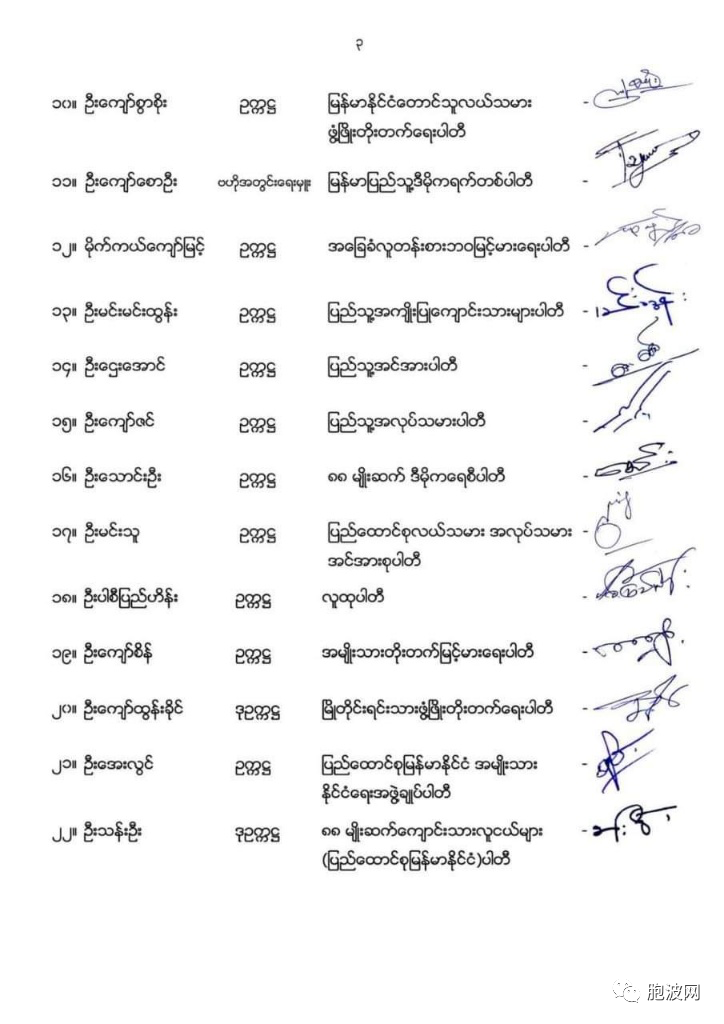 ၃
၁၀။ ဦးကျော်စွာစိုး ဥက္ကဋ္ဌ မြန်မာနိုင်ငံတောင်သူလယ်သမား -
ဖွံ့ဖြိုးတိုးတက်ရေးပါတီ
၁၁။ ဦးကျော်စောဦး ဗဟိုအတွင်းရေးမှူး မြန်မာပြည်သူ့ဒီမိုကရက်တစ်ပါတီ -
၁၂။ မိုက်ကယ်ကျော်မြင့် ဥက္ကဋ္ဌ အခြေခံလူတန်းစားဘဝမြင့်မားရေးပါတီ -
၁၃။ ဦးမင်းမင်းထွန်း ဥက္ကဋ္ဌ ပြည်သူ့အကျိုးပြုကျောင်းသားများပါတီ -
၁၄။ ဦးဌေးအောင် ဥက္ကဋ္ဌ ပြည်သူ့အင်အားပါတီ -
၁၅။ ဦးကျော်ဇင် ဥက္ကဋ္ဌ ပြည်သူ့အလုပ်သမားပါတီ -
၁၆။ ဦးသောင်းဦး ဥက္ကဋ္ဌ ၈၈ မျိုးဆက် ဒီမိုကရေစီပါတီ -
၁၇။ ဦးမင်းသူ ဥက္ကဋ္ဌ ပြည်ထောင်စုလယ်သမား အလုပ်သမား -
အင်အားစုပါတီ
၁၈။ ဦးပါစီပြည်ဟိန်း ဥက္ကဋ္ဌ လူထုပါတီ -
၁၉။ ဦးကျော်စိန် ဥက္ကဋ္ဌ အမျိုးသားတိုးတက်မြင့်မားရေးပါတီ -
၂၀။ ဦးကျော်ထွန်းခိုင် ဒုဥက္ကဋ္ဌ မြိုတိုင်းရင်းသားဖွံ့ဖြိုးတိုးတက်ရေးပါတီ -
၂၁။ ဦးအေးလွင် ဥက္ကဋ္ဌ ပြည်ထောင်စုမြန်မာနိုင်ငံ အမျိုးသား -
နိုင်ငံရေးအဖွဲ့ချုပ်ပါတီ
၂၂။ ဦးသန်းဦး ဒုဥက္ကဋ္ဌ ၈၈ မျိုးဆက်ကျောင်းသားလူငယ်များ -
(ပြည်ထောင်စုမြန်မာနိုင်ငံ)ပါတီ
胞波网